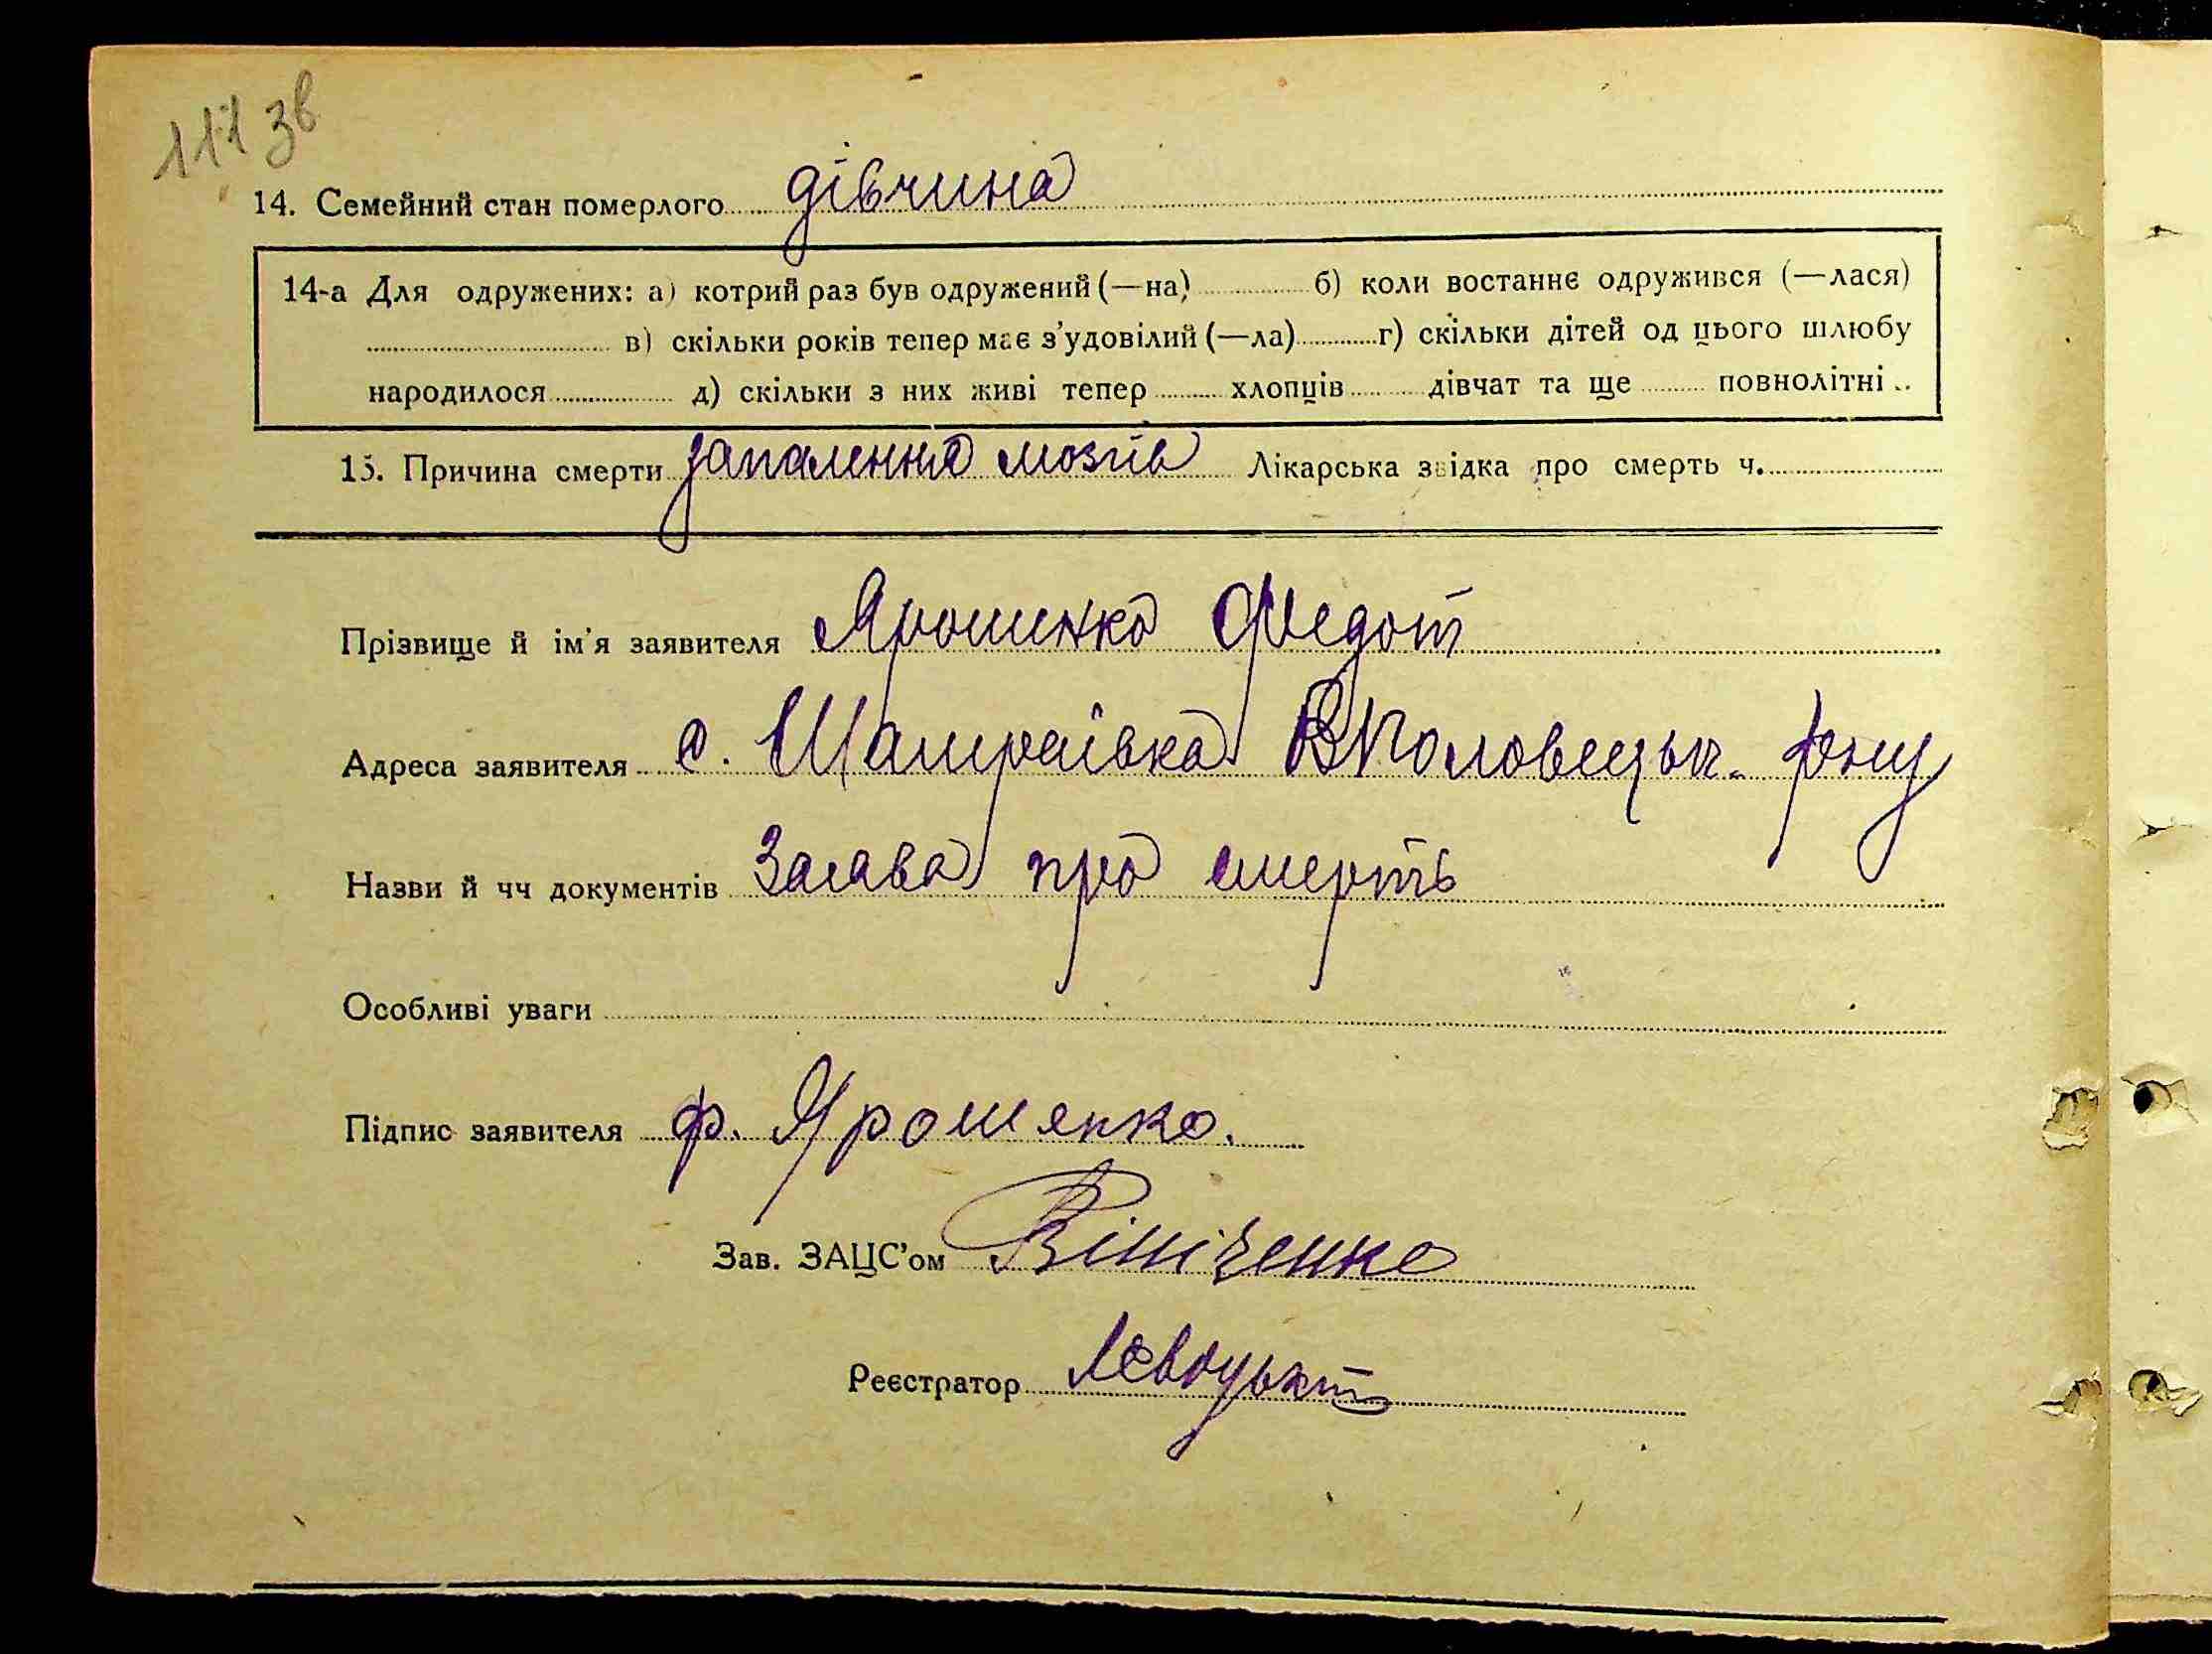 111 зв
14. Семейний стан померлого дівчина
14-а Для одружених: а) котрий раз був одружений (—на) б) коли востаннє одружився (—лася)
в) скільки років тепер має з'удовілий (—ла) г) скільки дітей од цього шлюбу
народилося д) скільки з них живі тепер хлопців дівчат та ще повнолітні
15. Причина смерти запалення мозгів Лікарська звідка про смерть ч.
Прізвище й ім'я заявителя Ярошенко Федот
Адреса заявителя с. Шамраївка ВПоловецьк. р-ну
Назви й чч документів Заява про смерть
Особливі уваги
Підпис заявителя Ф. Ярошенко.
Зав. ЗАЦС'ом Вініченко
Реєстратор